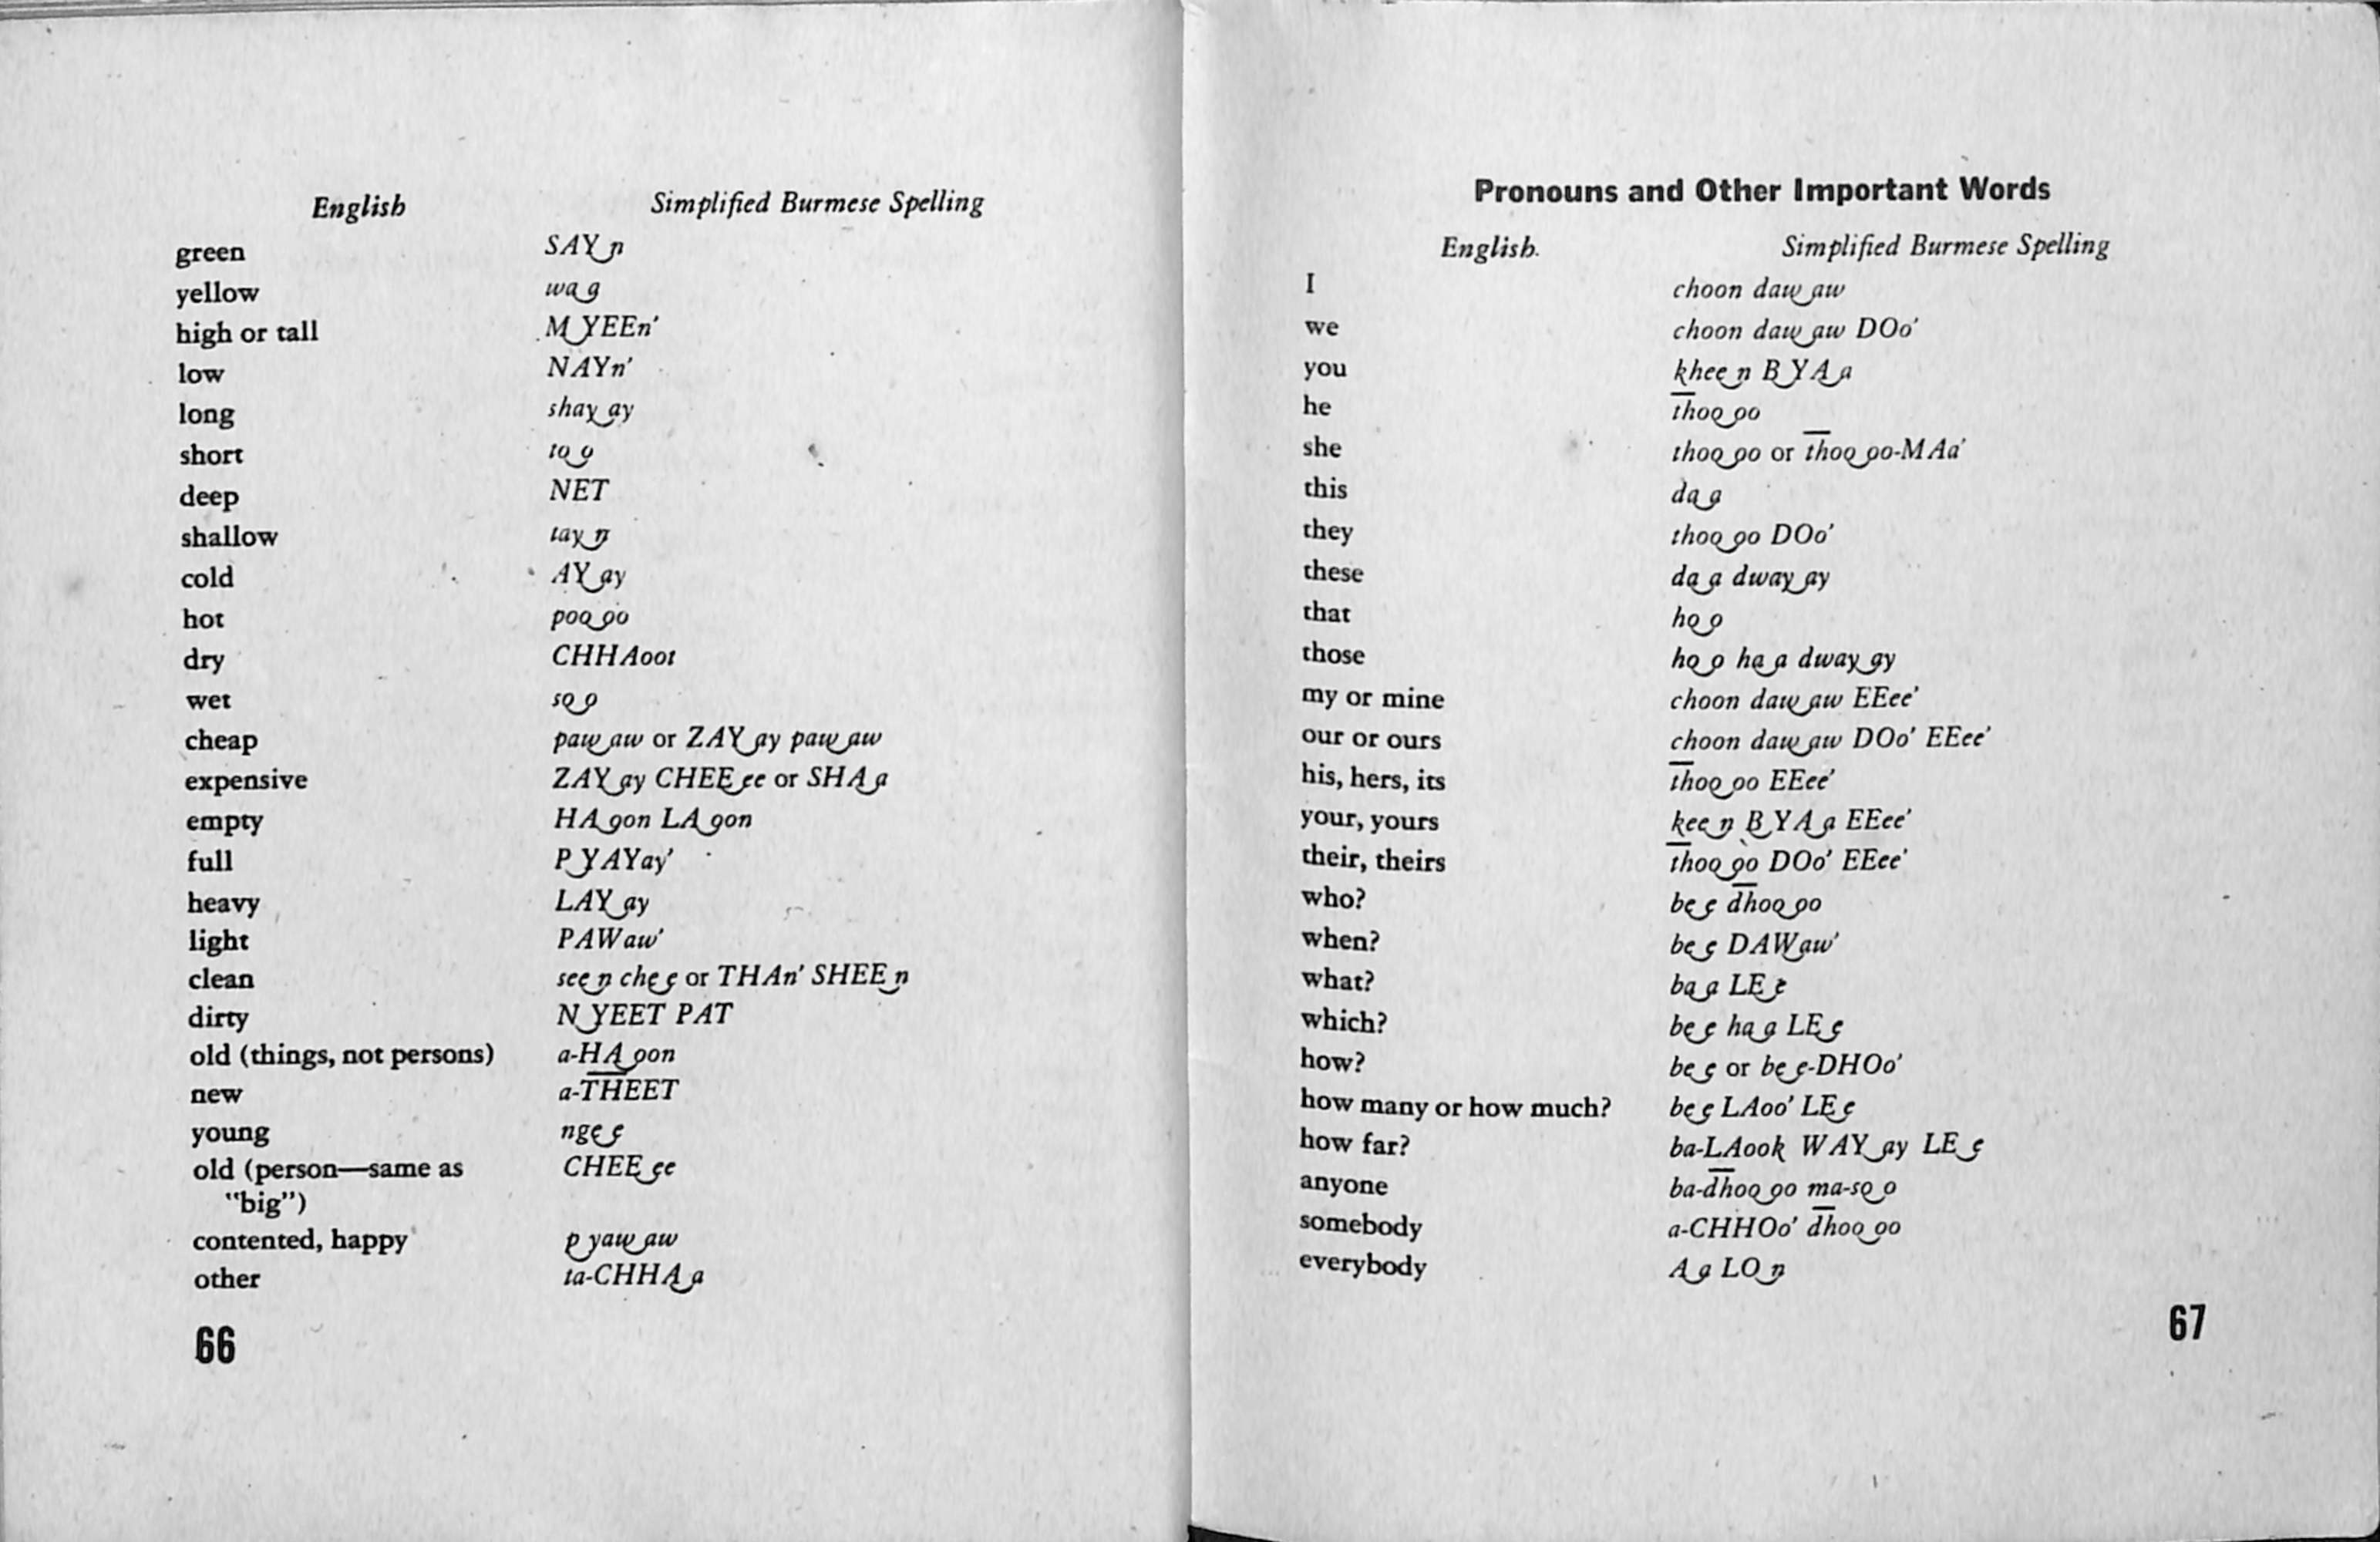 English Simplified Burmese Spelling
green SAY‿n
yellow wa‿a
high or tall M‿YEEn’
low NAYn’
long shay‿ay
short to‿o
deep NET
shallow tay‿n
cold AY‿ay
hot poo‿oo
dry CHHAoot
wet so‿o
cheap paw‿aw or ZAY‿ay paw‿aw
expensive ZAY‿ay CHEE‿ee or SHA‿a
empty HA‿oon LA‿oon
full P‿YAYay’
heavy LAY‿ay
light PAWaw’
clean see‿n che‿e or THAn’ SHEE‿n
dirty N‿YEET PAT
old (things, not persons) a-HA‿oon
new a-T̅H̅EET
young nge‿e
old (person—same as CHEE‿ee
“big”)
contented, happy p‿yaw‿aw
other ta-CHHA‿a
66
Pronouns and Other Important Words
English. Simplified Burmese Spelling
I choon daw‿aw
we choon daw‿aw DOo’
you khee‿n B‿YA‿a
he t̅h̅oo‿oo
she thoo‿oo or t̅h̅oo‿oo-MAa’
this da‿a
they thoo‿oo DOo’
these da‿a dway‿ay
that ho‿o
those ho‿o ha‿a dway‿ay
my or mine choon daw‿aw EEee’
our or ours choon daw‿aw DOo’ EEee’
his, hers, its t̅h̅oo‿oo EEee’
your, yours kee‿n B‿YA‿a EEee’
their, theirs t̅h̅oo‿oo DOo’ EEee’
who? be‿e d̅h̅oo‿oo
when? be‿e DAW‿aw’
what? ba‿a LE‿e
which? be‿e ha‿a LE‿e
how? be‿e or be‿e-DHOo’
how many or how much? be‿e LAoo’ LE‿e
how far? ba-LAook WAY‿ay LE‿e
anyone ba-d̅h̅oo‿oo ma-so‿o
somebody a-CHHOo’ d̅h̅oo‿oo
everybody A‿a LO‿n
67